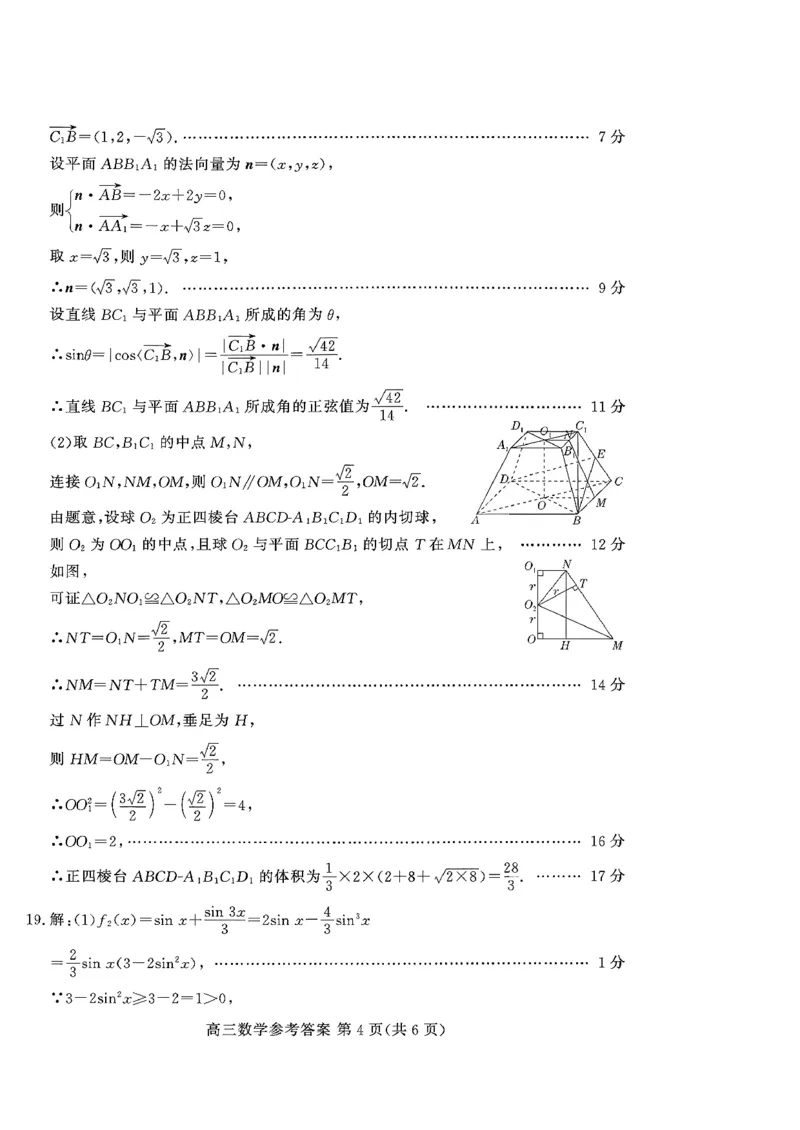 $\overrightarrow{C_1B}=(1,2,-\sqrt{3})$. …… 7 分
设平面 $ABB_1A_1$ 的法向量为 $\boldsymbol{n}=(x,y,z)$,
则$\begin{cases}\boldsymbol{n}\cdot\overrightarrow{AB}=-2x+2y=0,\\ \boldsymbol{n}\cdot\overrightarrow{AA_1}=-x+\sqrt{3}z=0,\end{cases}$
取 $x=\sqrt{3}$,则 $y=\sqrt{3},z=1$,
∴$\boldsymbol{n}=(\sqrt{3},\sqrt{3},1)$. …… 9 分
设直线 $BC_1$ 与平面 $ABB_1A_1$ 所成的角为 $\theta$,
∴$\sin\theta=|\cos\langle\overrightarrow{C_1B},\boldsymbol{n}\rangle|=\frac{|\overrightarrow{C_1B}\cdot\boldsymbol{n}|}{|\overrightarrow{C_1B}||\boldsymbol{n}|}=\frac{\sqrt{42}}{14}$.
∴直线 $BC_1$ 与平面 $ABB_1A_1$ 所成角的正弦值为 $\frac{\sqrt{42}}{14}$. …… 11 分
(2)取 $BC,B_1C_1$ 的中点 $M,N$,
连接 $O_1N,NM,OM$,则 $O_1N∥OM,O_1N=\frac{\sqrt{2}}{2},OM=\sqrt{2}$.
由题意,设球 $O_2$ 为正四棱台 $ABCD\text{-}A_1B_1C_1D_1$ 的内切球,
则 $O_2$ 为 $OO_1$ 的中点,且球 $O_2$ 与平面 $BCC_1B_1$ 的切点 $T$ 在 $MN$ 上, …… 12 分
D₁ O₁ N C₁
A₁ B₁ E
D C
O M
A B
如图,
可证△$O_2NO_1$≌△$O_2NT$,△$O_2MO$≌△$O_2MT$,
∴$NT=O_1N=\frac{\sqrt{2}}{2},MT=OM=\sqrt{2}$.
O₁ N
r T
O₂ r
r
O H M
∴$NM=NT+TM=\frac{3\sqrt{2}}{2}$. …… 14 分
过 $N$ 作 $NH\perp OM$,垂足为 $H$,
则 $HM=OM-O_1N=\frac{\sqrt{2}}{2}$,
∴$OO_1^2=\left(\frac{3\sqrt{2}}{2}\right)^2-\left(\frac{\sqrt{2}}{2}\right)^2=4$,
∴$OO_1=2$, …… 16 分
∴正四棱台 $ABCD\text{-}A_1B_1C_1D_1$ 的体积为$\frac{1}{3}\times2\times(2+8+\sqrt{2\times8})=\frac{28}{3}$. …… 17 分
19.解:(1)$f_2(x)=\sin x+\frac{\sin 3x}{3}=2\sin x-\frac{4}{3}\sin^3x$
$=\frac{2}{3}\sin x(3-2\sin^2x)$, …… 1 分
∵$3-2\sin^2x\geqslant3-2=1>0$,
高三数学参考答案 第 4 页(共 6 页)